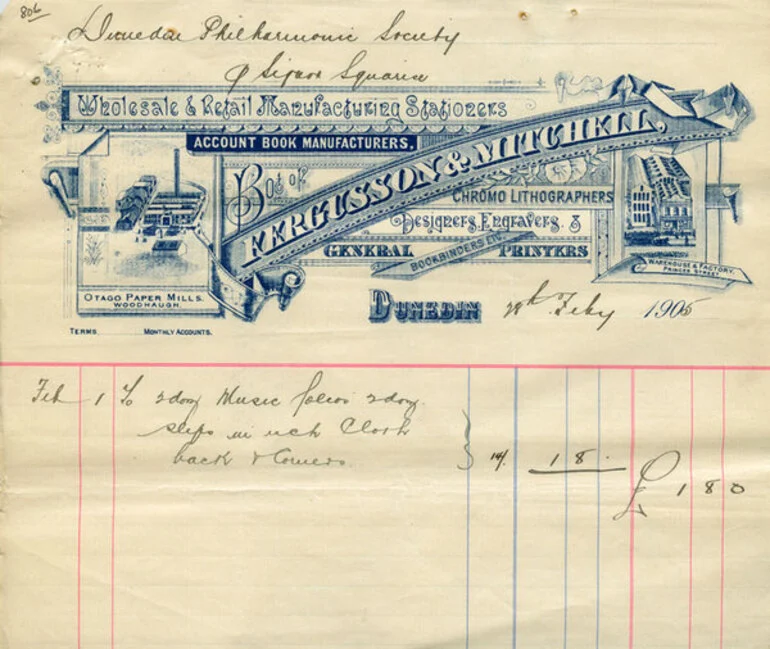 806
Dunedin Philharmonic Society
℅ Signor Squarise
Wholesale & Retail Manufacturing Stationers
ACCOUNT BOOK MANUFACTURERS,
Bot of
FERGUSSON & MITCHELL,
CHROMO LITHOGRAPHERS
Designers, Engravers, &
GENERAL PRINTERS
BOOKBINDERS ETC.
OTAGO PAPER MILLS.
WOODHAUGH.
WAREHOUSE & FACTORY,
PRINCES STREET.
DUNEDIN 28th Feby 1905
TERMS MONTHLY ACCOUNTS.
Feb 1 To 2 doz Music folios 2 doz
slips in each Cloth
back & Corners 14/. 1 8 .
£ 1 8 0